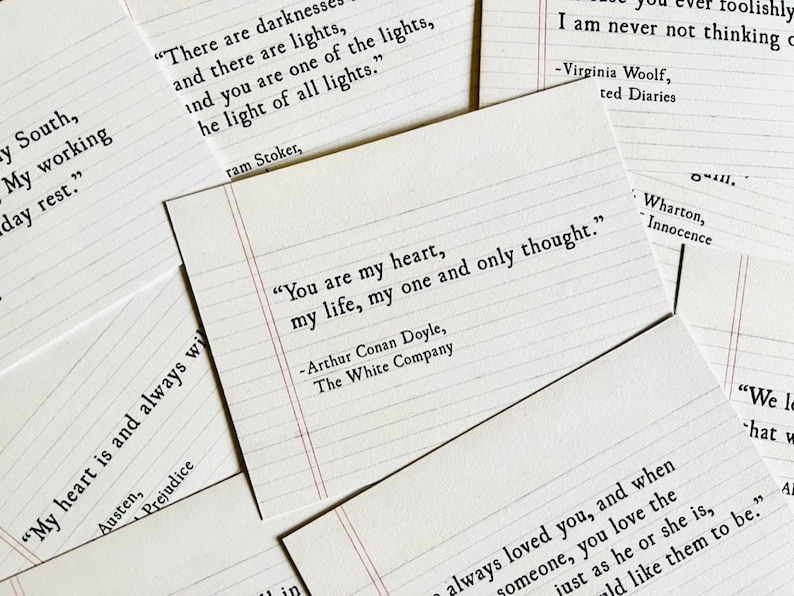 South,
My working
day rest.”
“There are darknesses
and there are lights,
and you are one of the lights,
he light of all lights.”
ram Stoker,
you ever foolishly
I am never not thinking
~Virginia Woolf,
ted Diaries
Wharton,
f Innocence
“You are my heart,
my life, my one and only thought.”
~Arthur Conan Doyle,
The White Company
“My heart is and always wil
Austen,
Prejudice
“We lo
that w
always loved you, and when
someone, you love the
just as he or she is,
uld like them to be.”